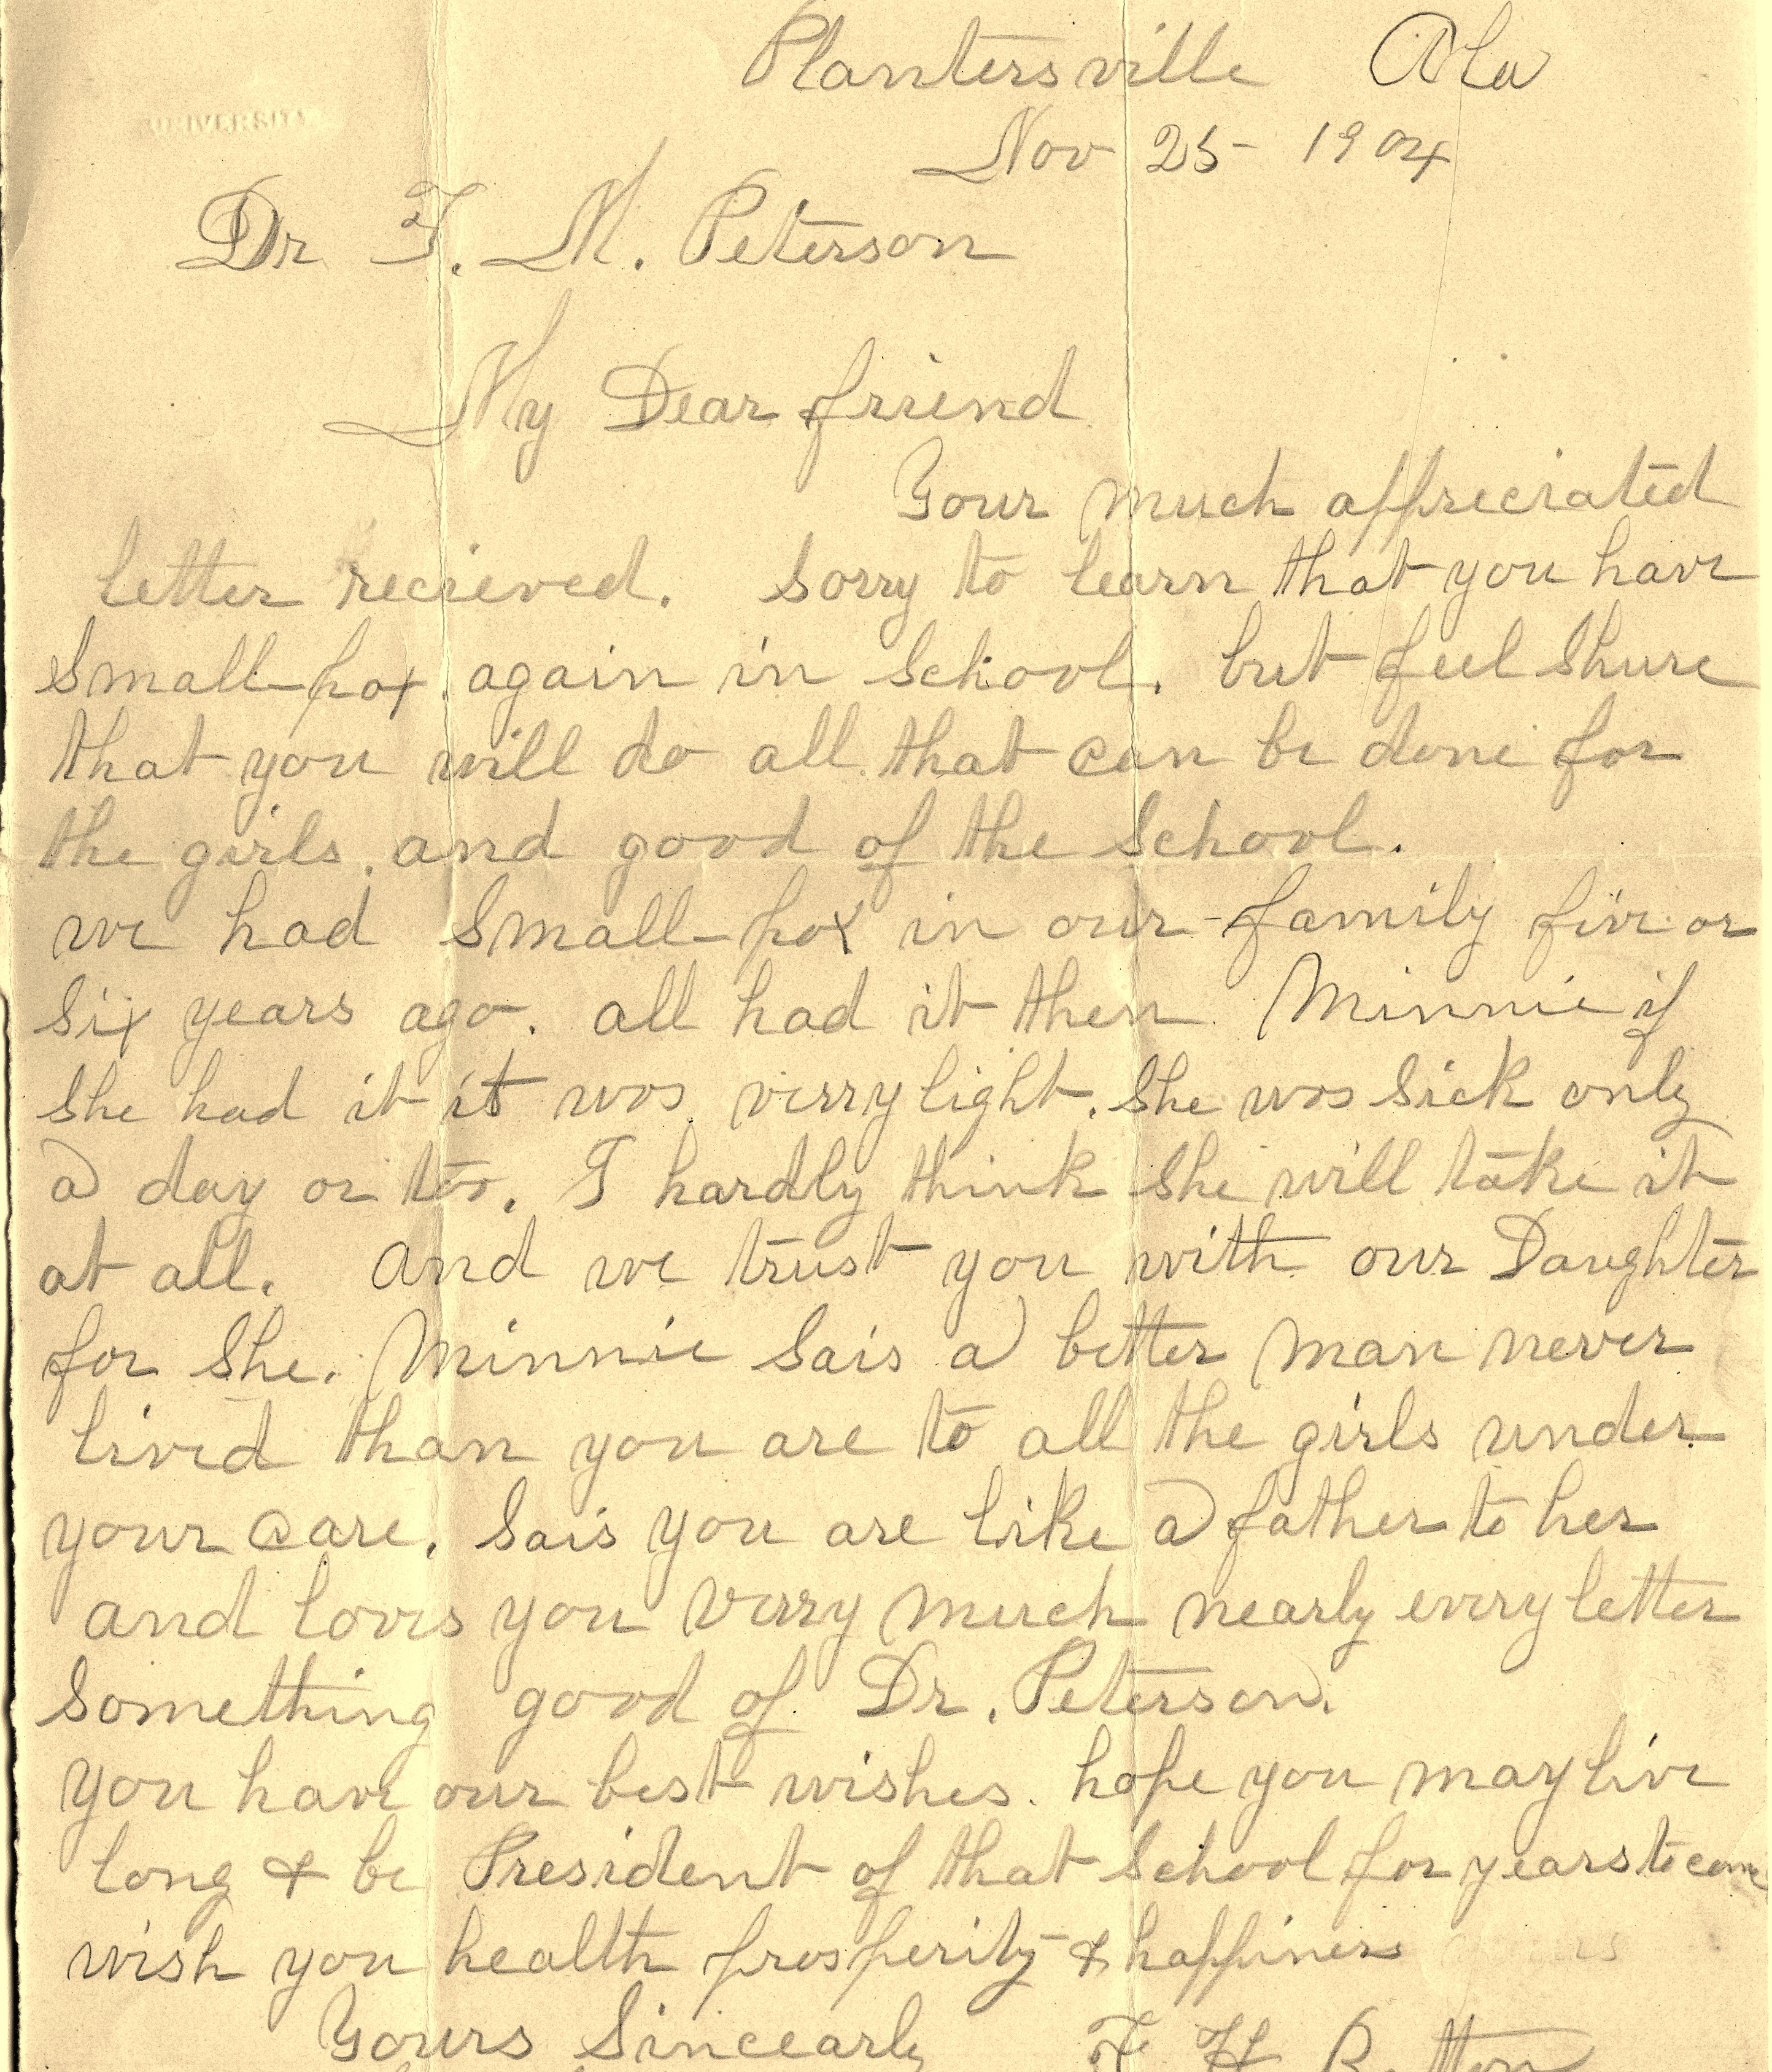 Plantersville Ala
UNIVERSITY
Nov 25 - 1904
Dr F. M. Peterson
My Dear friend
Your much appreciated
letter recieved. Sorry to learn that you have
Small-pox again in School. but feel Shure
that you will do all that can be done for
the girls. and good of the School.
we had Small-pox in our family five or
Six years ago. all had it then. Minnie if
She had it it was verry light. She was Sick only
a day or too. I hardly think She will take it
at all. And we trust you with our Daughter
for She. Minnie Sais a better man never
lived than you are to all the girls under
your care. Sais you are like a father to her
and loves you verry much nearly every letter
Something good of Dr. Peterson.
You have our best wishes. hope you may live
long & be President of that School for years to come
wish you health prosperity & happiness
Yours Sincearly F H